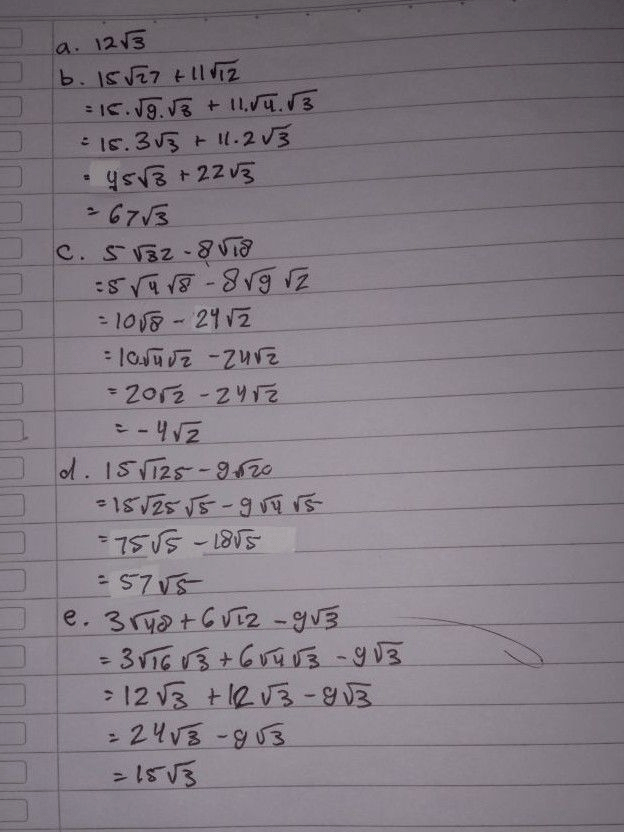 a. 12√3
b. 15√27 + 11√12
= 15.√9.√3 + 11.√4.√3
= 15.3√3 + 11.2√3
= 45√3 + 22√3
= 67√3
c. 5√32 - 8√18
= 5√4√8 - 8√9√2
= 10√8 - 24√2
= 10√4√2 - 24√2
= 20√2 - 24√2
= -4√2
d. 15√125 - 9√20
= 15√25√5 - 9√4√5
= 75√5 - 18√5
= 57√5
e. 3√48 + 6√12 - 9√3
= 3√16√3 + 6√4√3 - 9√3
= 12√3 + 12√3 - 9√3
= 24√3 - 9√3
= 15√3